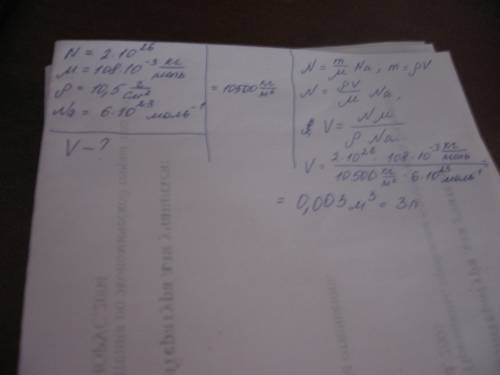 N = 2·10²⁶
M = 108·10⁻³ кг/моль
ρ = 10,5 г/см³ = 10500 кг/м³
Na = 6·10²³ моль⁻¹
V – ?
N = m/M Na, m = ρV
N = ρV/M Na,
V = NM/ρ Na
V = 2·10²⁶ · 108·10⁻³ кг/моль / 10500 кг/м³ · 6·10²³ моль⁻¹
= 0,003 м³ = 3л